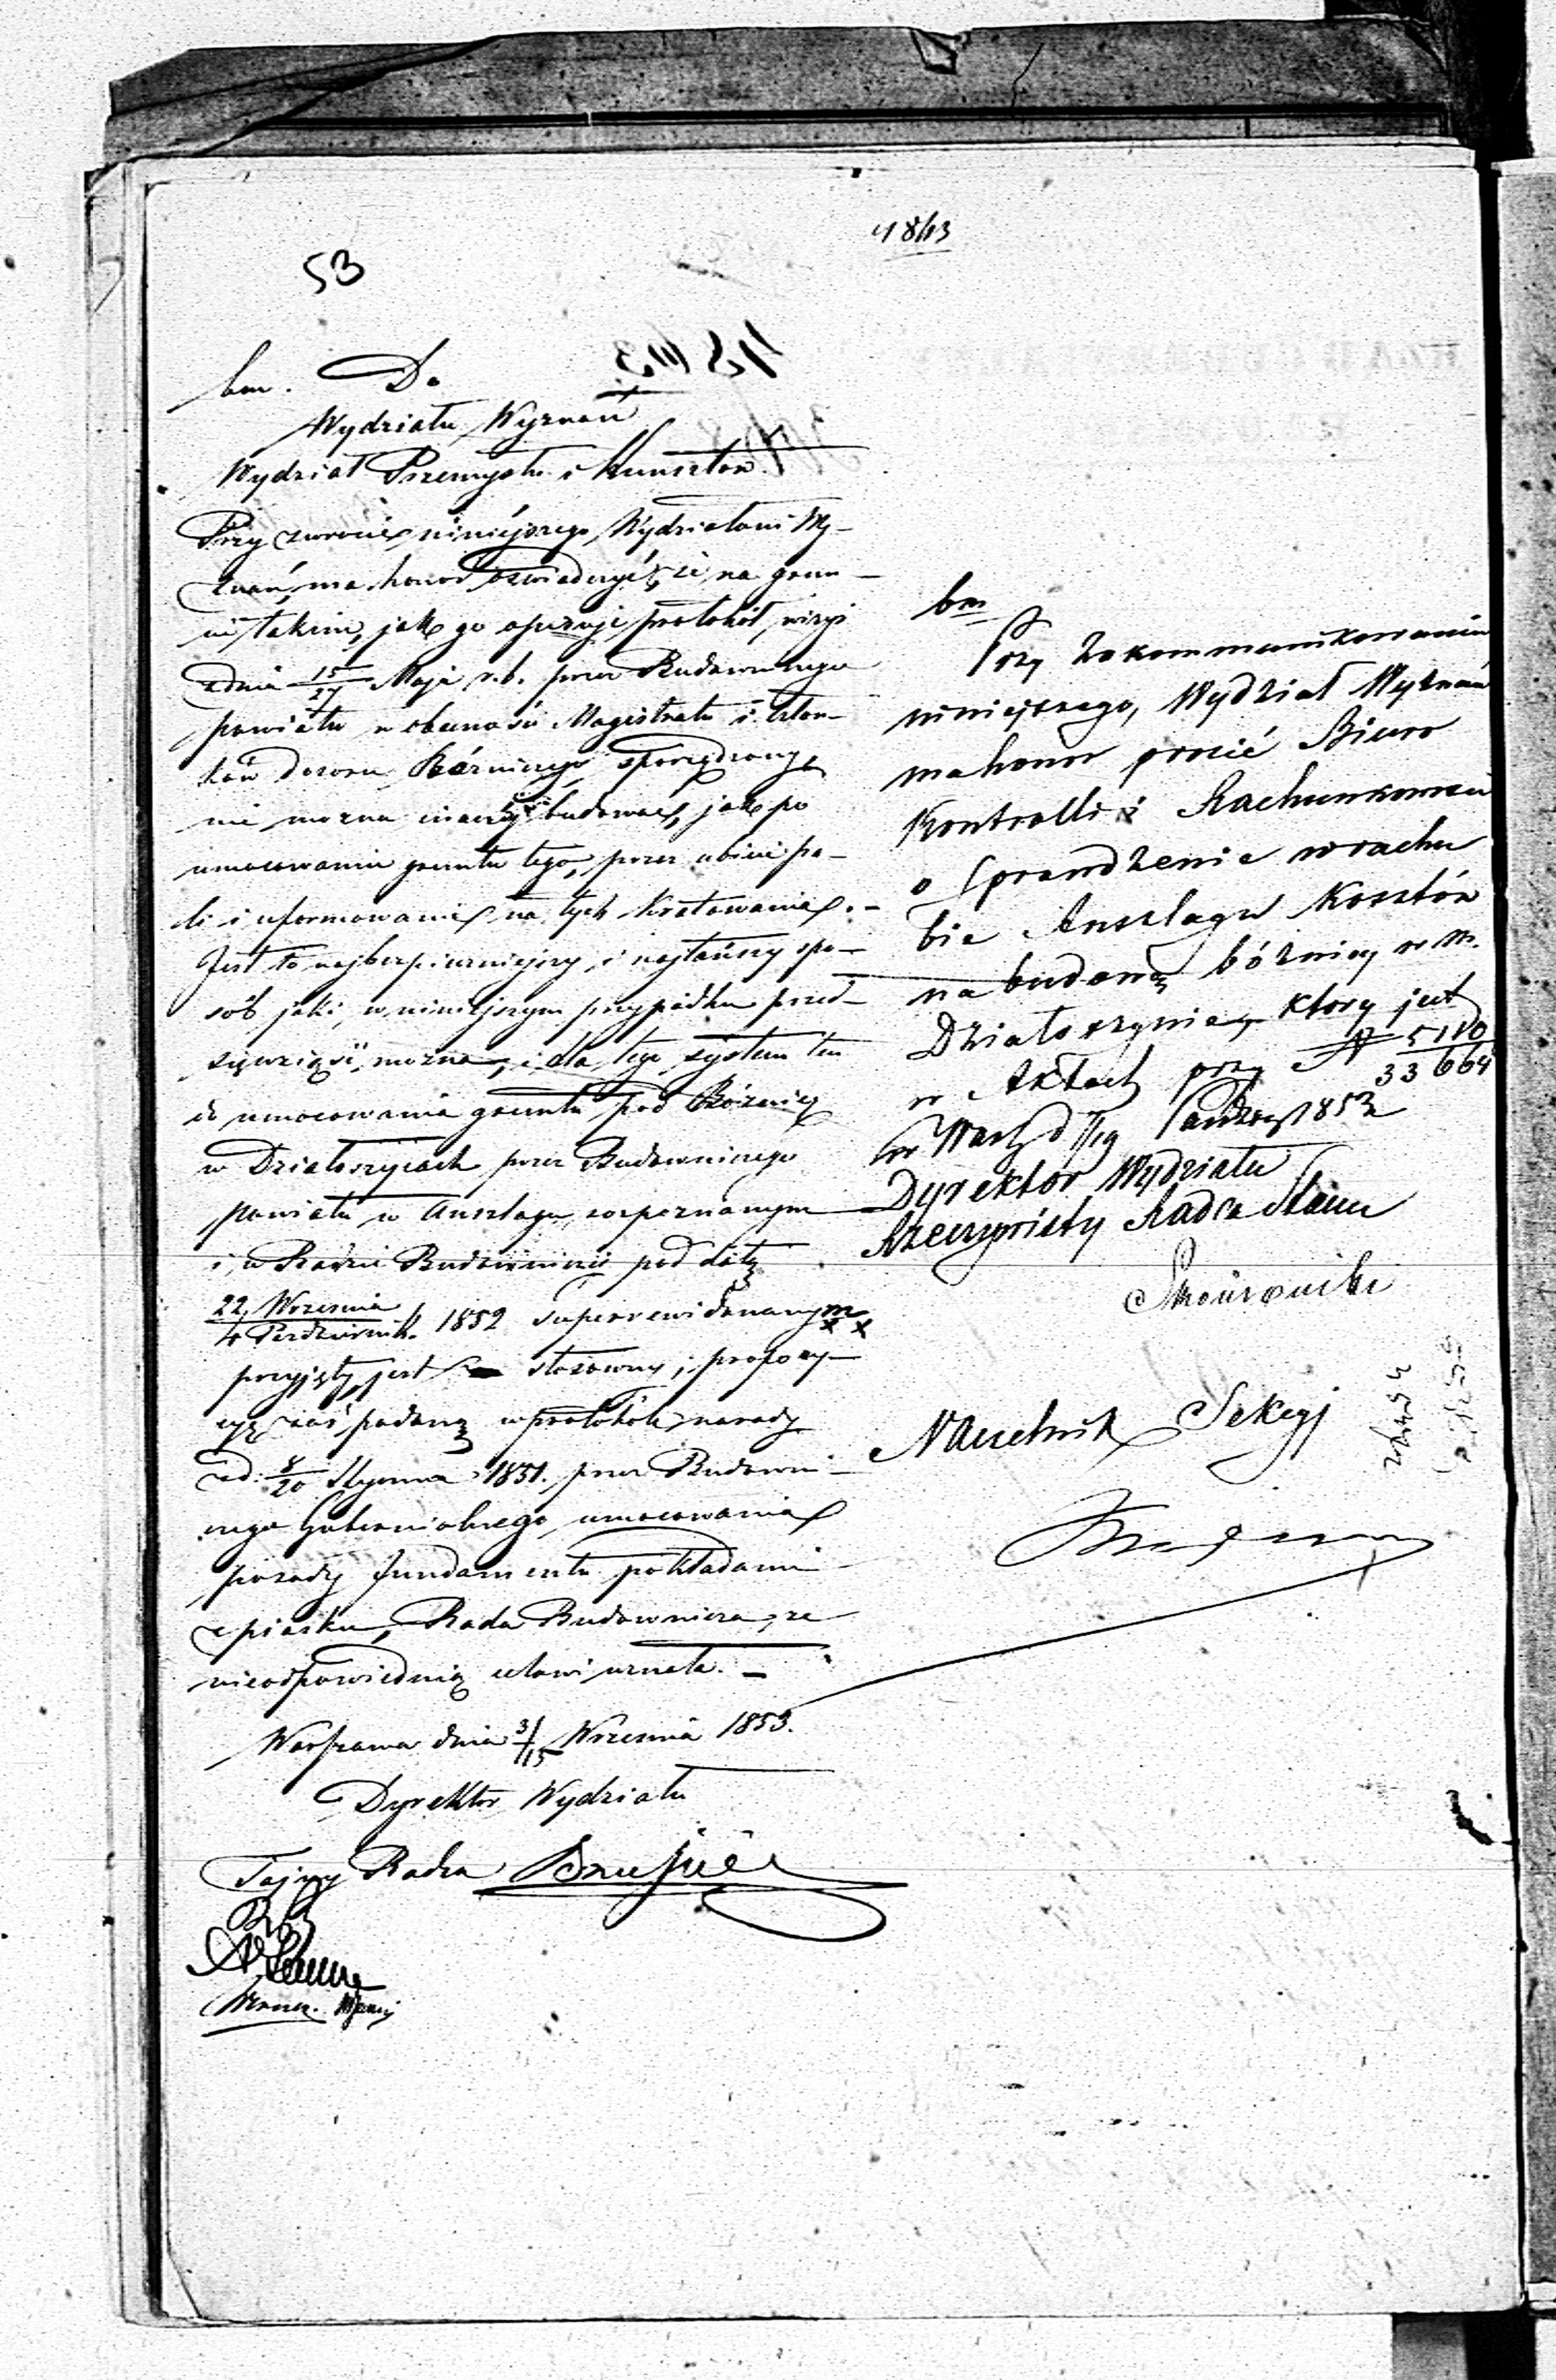 53
48413
bm. Do
Wydziału Wyznań
Wydział Przemysłu i Kunsztów.
Przy zwrocie niniejszego Wydziałowi Wy-
znań, ma honor oświadczyć, że na grun-
cie takim, jak go opisuje protokół, wizyi
z dnia 15/27 Maja r.b. przez Budowniczego
powiatu w obecności Magistratu i człon-
ków dozoru Bóżniczego sporządzony,
nie można inaczéj budować, jak po
umocowaniu gruntu tego, przez ubicie pa-
li i uformowanie na tych kratowania.-
Jest to najbezpieczniejszy i najtańszy spo-
sób jaki, w niniejszym przypadku przed-
sięwziąść można, i dla tego system ten
do umocowania gruntu pod Bóżnicę
w Działoszycach przez Budowniczego
powiatu w Anszlagu rozpoznanym
i w Radzie Budowniczéj pod datą
22 Września / 4 Październik. 1852 superrewidowanym
przyjęty jest stosowny; propozy-
cyę zaś podaną w protokóle narady
z d. 8/20 Stycznia 1851. przez Budowni-
czego Gubernialnego, umocowania
posady fundamentu pokładami
z piasku, Rada Budownicza, za
nieodpowiednią celowi uznała. -
Warszawa dnia 3/15 Września 1853.
Dyrektor Wydziału
Tajny Radca
bm
Przy zakommunikowaniu
niniejszego, Wydział Wyznań
ma honor prosić Biuro
Kontrolli i Rachunkowości
o sprawdzenie w rachu
bie Anszlagu kosztów
na budowę bóżnicy w m.
Działoszynie, który jest
w Aktach przy N 5110/33664
w Warsz d 1853
Dyrektor Wydziału
Rzeczywisty Radca Stanu
Naczelnik Sekcyj